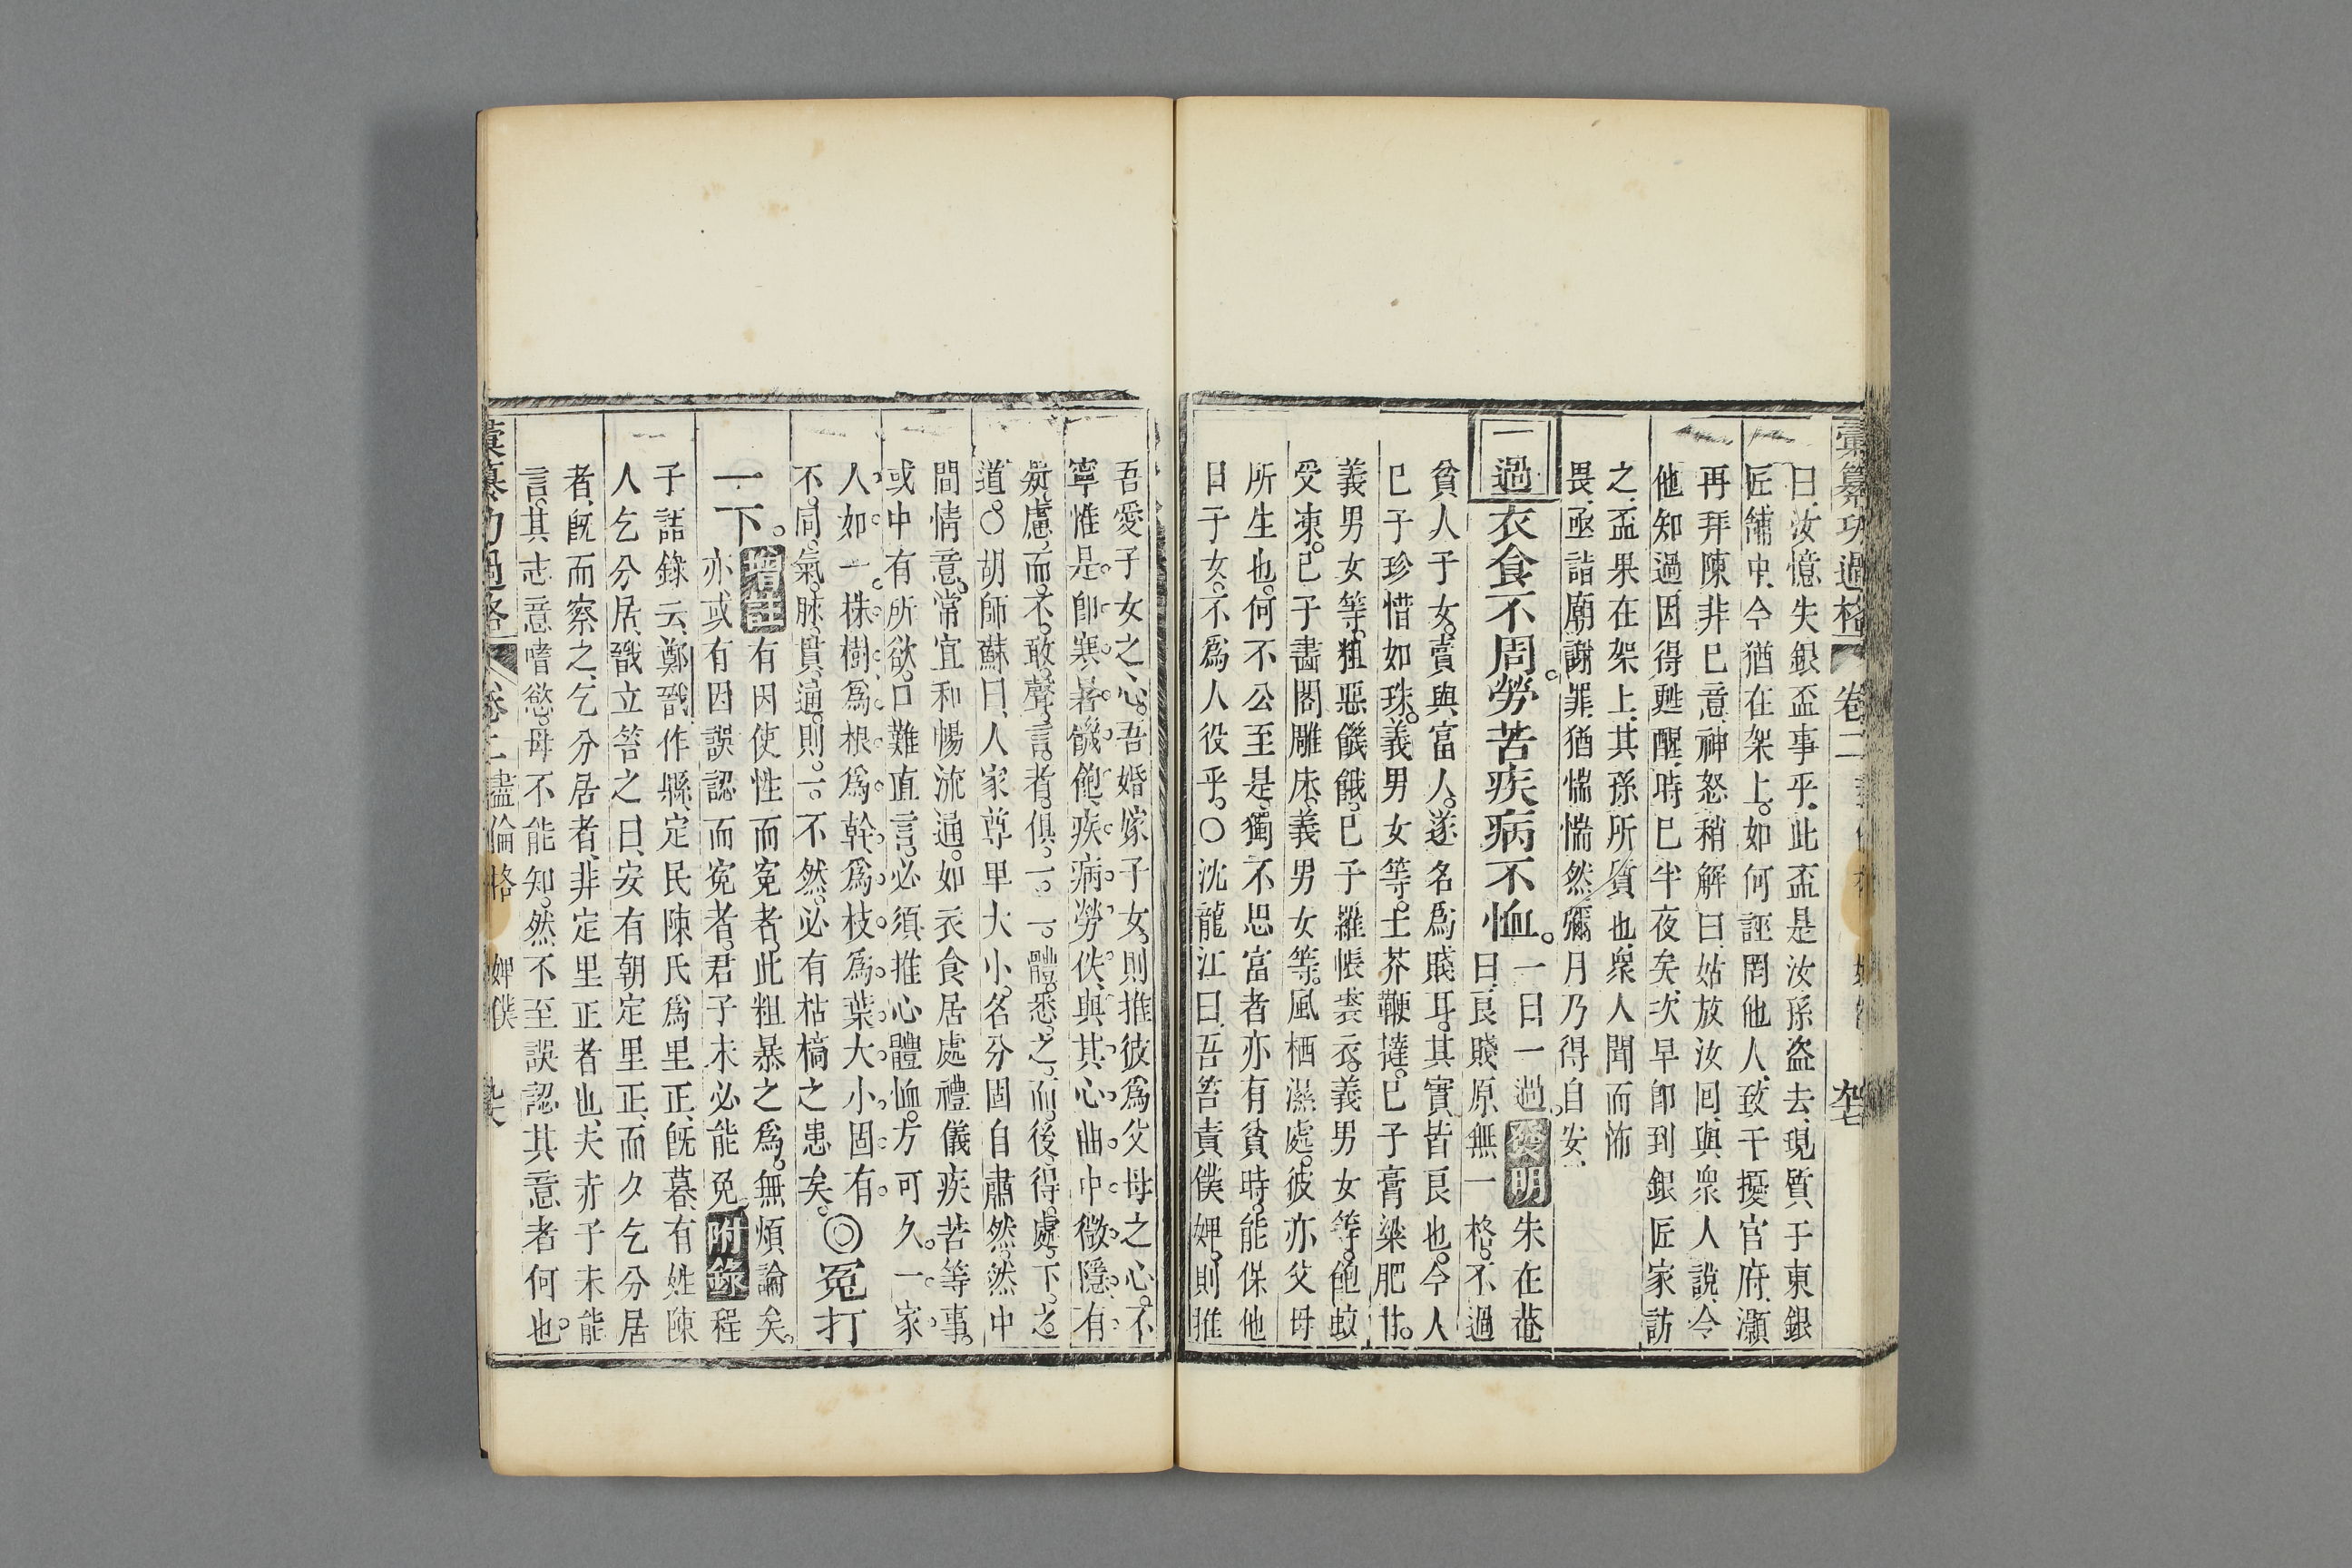 彙纂功過格 卷二
曰、汝憶失銀盃事乎、此盃是汝孫盜去、現質于東銀
匠舖中、今猶在架上。如何誣罔他人、致干擾官府、灝
再拜陳非巳意、神怒稍解曰、姑放汝回、與衆人說、令
他知過、因得甦醒、時巳半夜矣、次早卽到銀匠家訪
之、盃果在架上、其孫所質也、衆人聞而怖
畏、亟詣廟謝罪、猶惴惴然、彌月乃得自安、
一過 衣食不周。勞苦疾病不恤。一日一過。 發明 朱在菴
曰、良賤原無一格。不過
貧人子女。賣與富人。遂名爲賤耳。其實皆良也。今人
巳子珍惜如珠。義男女等。土芥鞭撻。巳子膏粱肥甘。
義男女等。粗惡饑餓。巳子羅帳裘衣。義男女等。飽蚊
受凍。巳子畵閣雕床。義男女等。風栖濕處。彼亦父母
所生也。何不公至是。獨不思富者亦有貧時。能保他
日子女。不爲人役乎。○沈龍江曰、吾笞責僕婢。則推
吾愛子女之心。吾婚嫁子女。則推彼爲父母之心。不
寧惟是。卽寒暑饑飽、疾病勞佚、與其心曲中微隱、有
疑慮、而。不。敢。聲。言。者。俱。一。一。體。悉。之。而。後。得。處。下。之。
道。○胡師蘇曰、人家尊卑大小。名分固自肅然。然中
間情意。常宜和暢流通。如衣食居處禮儀疾苦等事。
或中有所欲。口難直言。必須推心體恤。方可久。一家
人。如一。株樹、爲根爲幹、爲枝爲葉、大小固有
不。同。氣。脉。貫。通。則。一。不然。必有枯槁之患矣。◎冤打
一下。 增註 有因使性而冤者。此粗暴之爲。無煩論矣。
亦或有因誤認而寃者。君子未必能免、 附錄 程
子語錄云、鄭戩作縣、定民陳氏爲里正、旣暮、有姓陳
人乞分居、戩立笞之、曰、安有朝定里正、而夕乞分居
者、旣而察之、乞分居者、非定里正者也、夫赤子未能
言。其志意嗜慾。母不能知。然不至誤認其意者何也。
彙纂功過格 卷二 盡倫格 婢僕